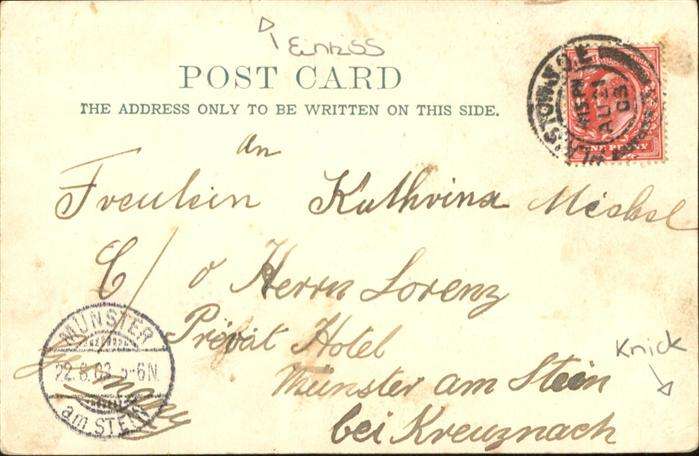 Einriss
POST CARD
THE ADDRESS ONLY TO BE WRITTEN ON THIS SIDE.
ONE PENNY
AU 21
03
an
Freulein Kathrina Meskel
C/o Herrn Lorenz
Privat Hotel
Münster am Stein
bei Kreuznach
Germany
Knick
MÜNSTER
22.8.03 5-6N.
am STEIN